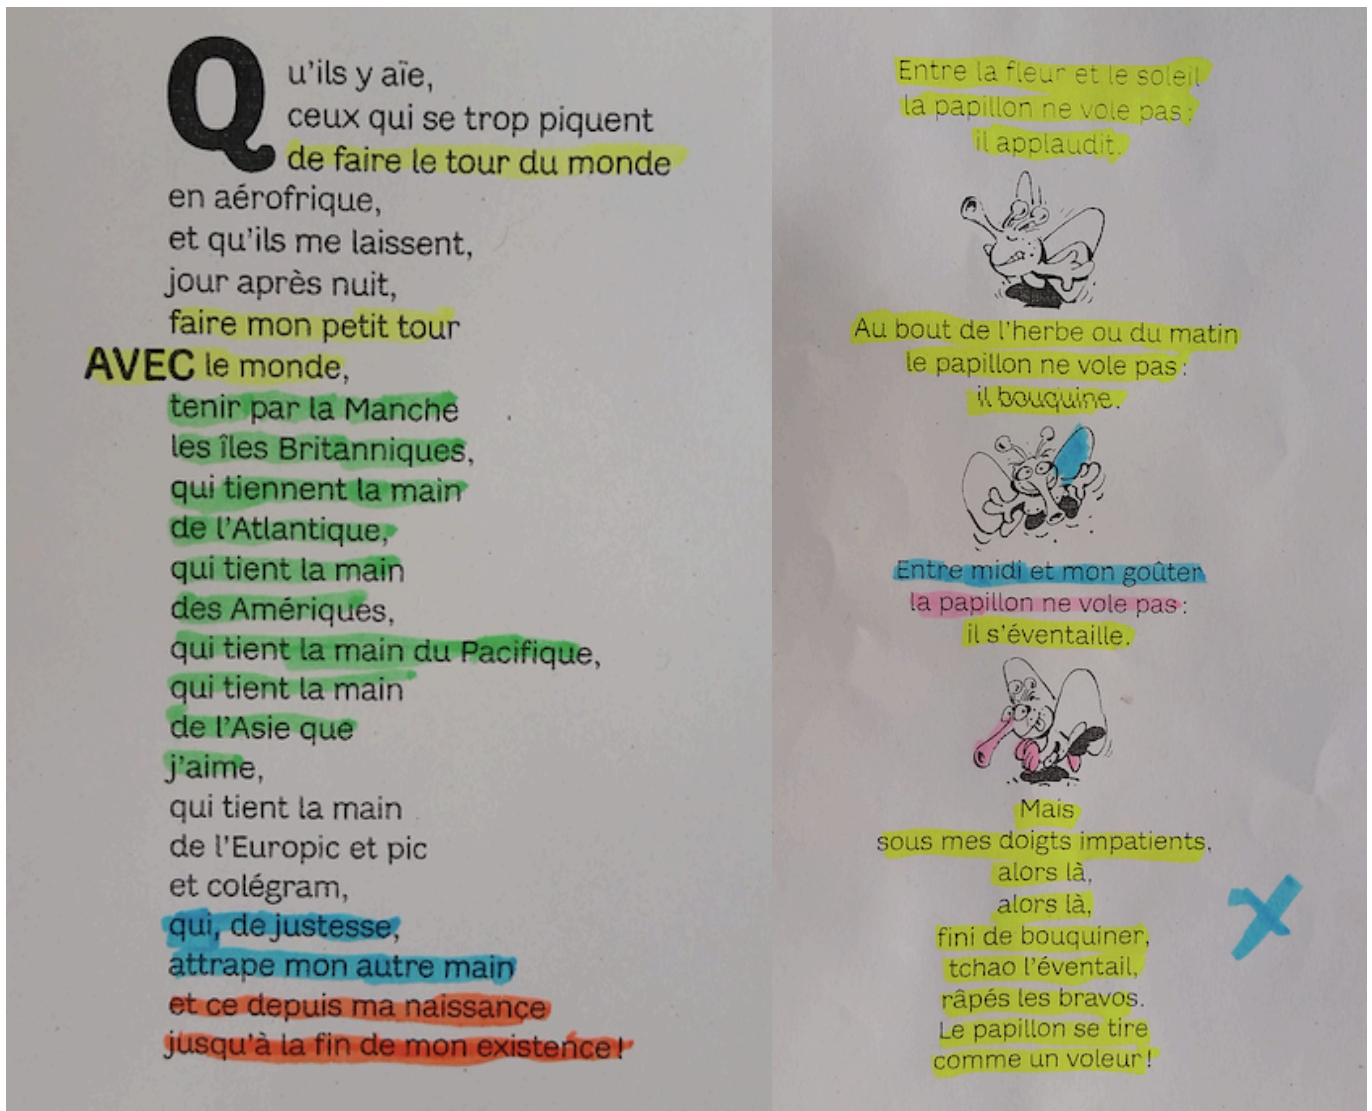 Qu'ils y aïe,
ceux qui se trop piquent
de faire le tour du monde
en aérofrique,
et qu'ils me laissent,
jour après nuit,
faire mon petit tour
AVEC le monde,
tenir par la Manche
les îles Britanniques,
qui tiennent la main
de l'Atlantique,
qui tient la main
des Amériques,
qui tient la main du Pacifique,
qui tient la main
de l'Asie que
j'aime,
qui tient la main
de l'Europic et pic
et colégram,
qui, de justesse,
attrape mon autre main
et ce depuis ma naissance
jusqu'à la fin de mon existence!
Entre la fleur et le soleil
la papillon ne vole pas:
il applaudit.
Au bout de l'herbe ou du matin
le papillon ne vole pas:
il bouquine.
Entre midi et mon goûter
la papillon ne vole pas:
il s'éventaille.
Mais
sous mes doigts impatients,
alors là,
alors là,
fini de bouquiner,
tchao l'éventail,
râpés les bravos.
Le papillon se tire
comme un voleur!